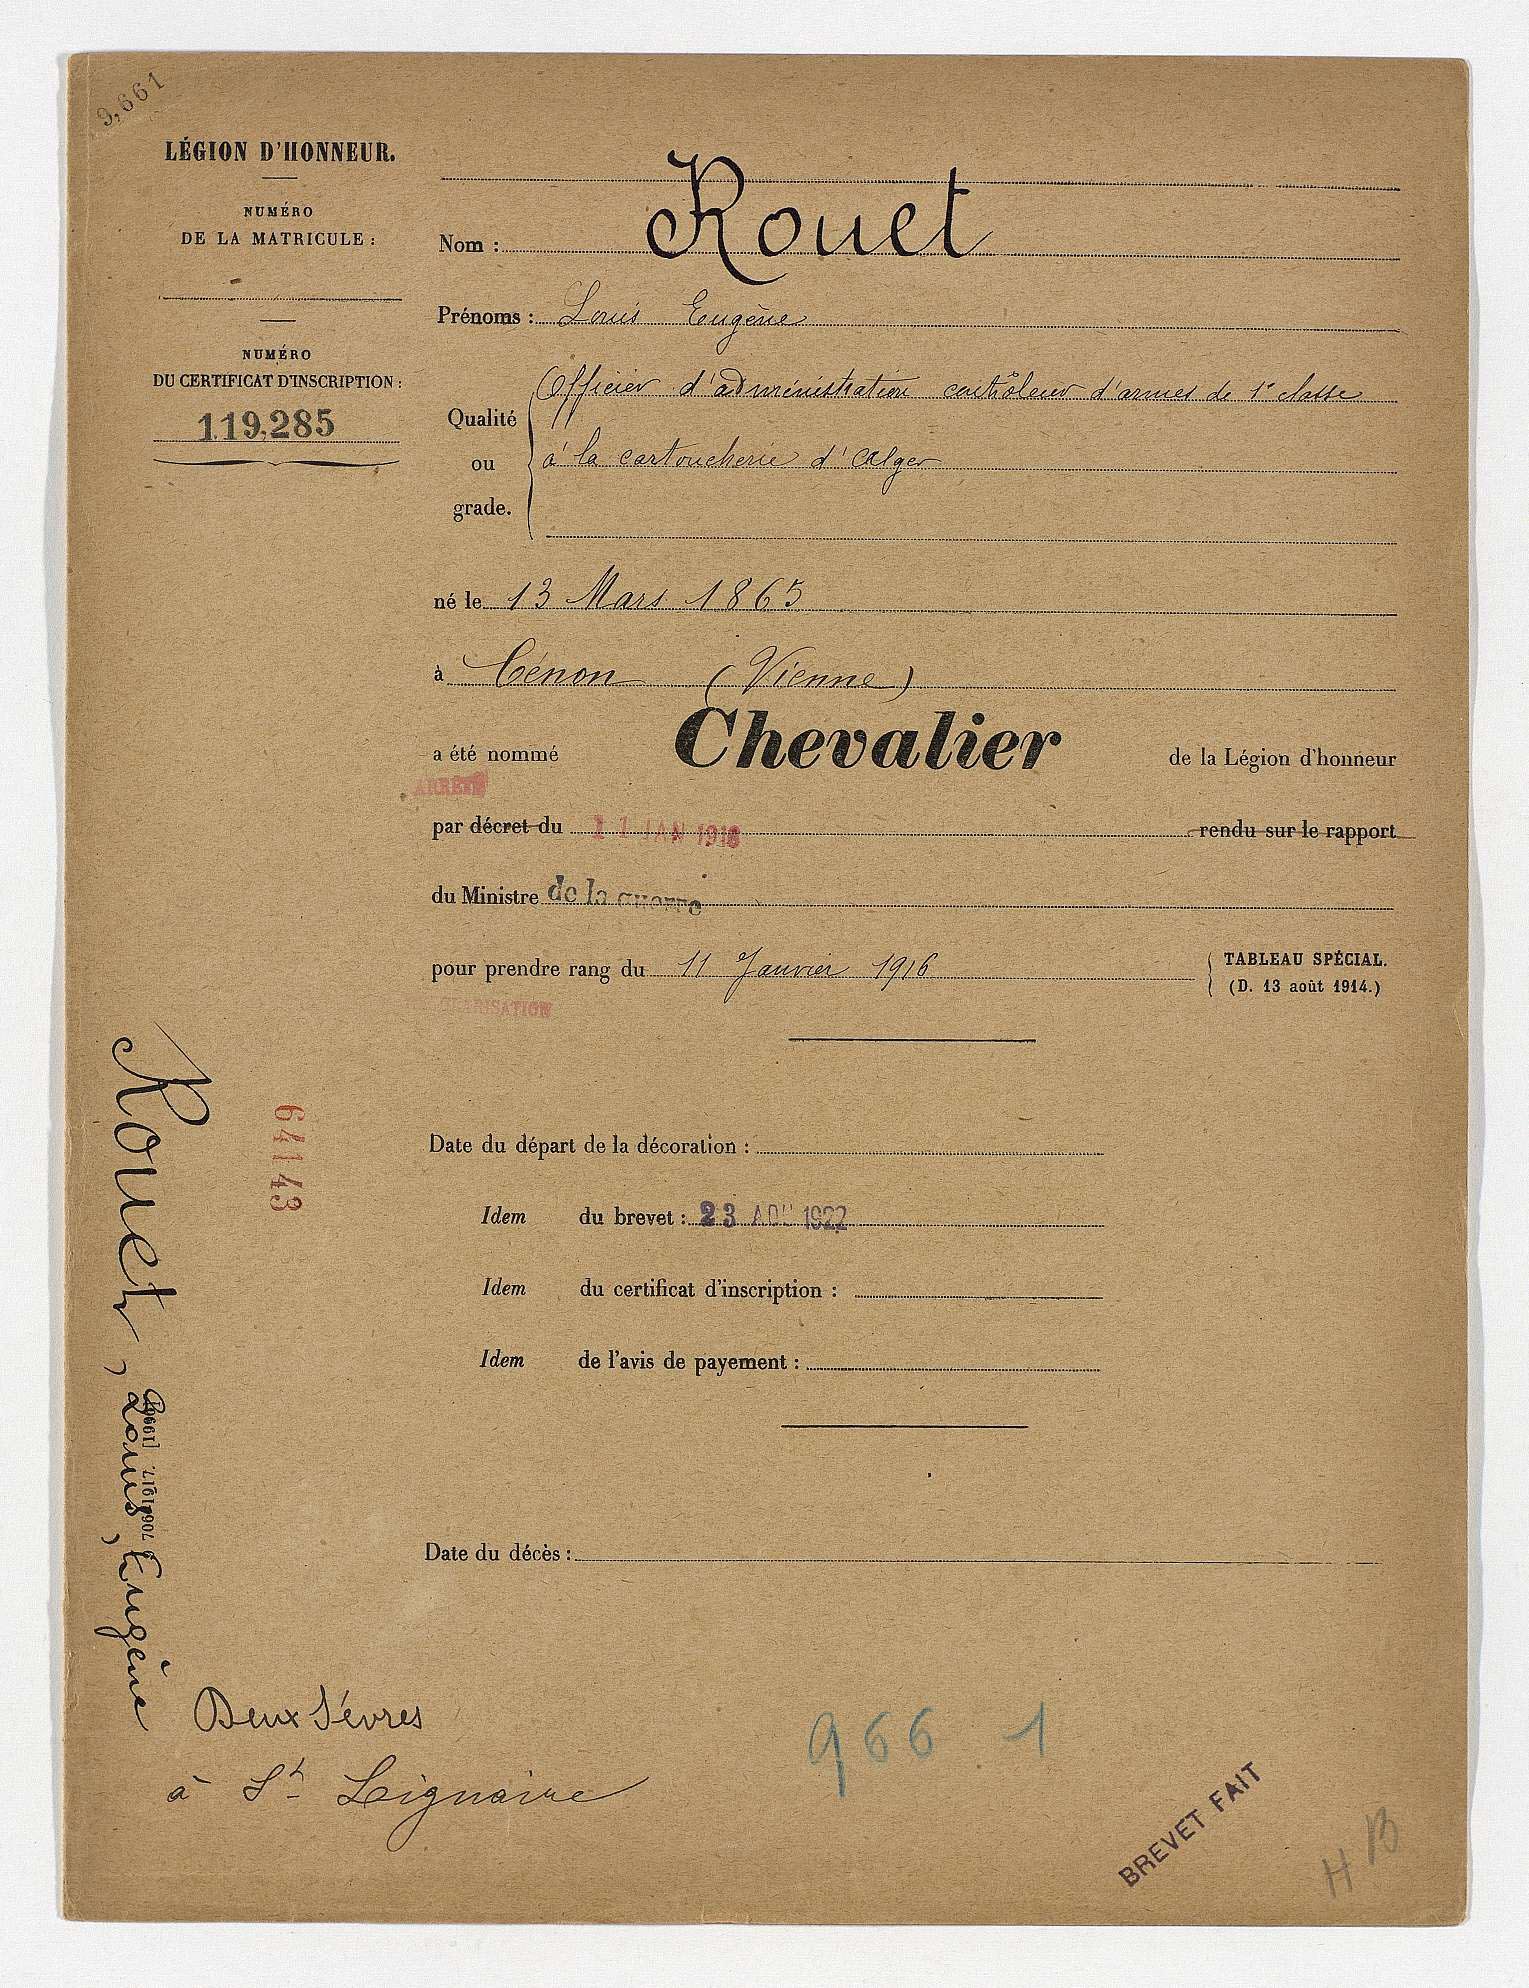 9,661
LÉGION D'HONNEUR.
NUMÉRO
DE LA MATRICULE :
NUMÉRO
DU CERTIFICAT D'INSCRIPTION :
119,285
Nom : Rouet
Prénoms : Louis Eugène
Qualité
ou
grade.
Officier d'administration contrôleur d'armes de 1e classe
à la cartoucherie d'Alger
né le 13 Mars 1865
à Cénon (Vienne)
a été nommé Chevalier de la Légion d'honneur
ARRÊTÉ
par décret du 11 JAN 1916 rendu sur le rapport
du Ministre de la guerre
pour prendre rang du 11 Janvier 1916
TABLEAU SPÉCIAL.
(D. 13 août 1914.)
Date du départ de la décoration :
Idem du brevet : 23 AOU 1922
Idem du certificat d'inscription :
Idem de l'avis de payement :
Date du décès :
Rouet, Louis, Eugène
64143
Deux Sèvres
à St Lignaire
966 1
BREVET FAIT
H B